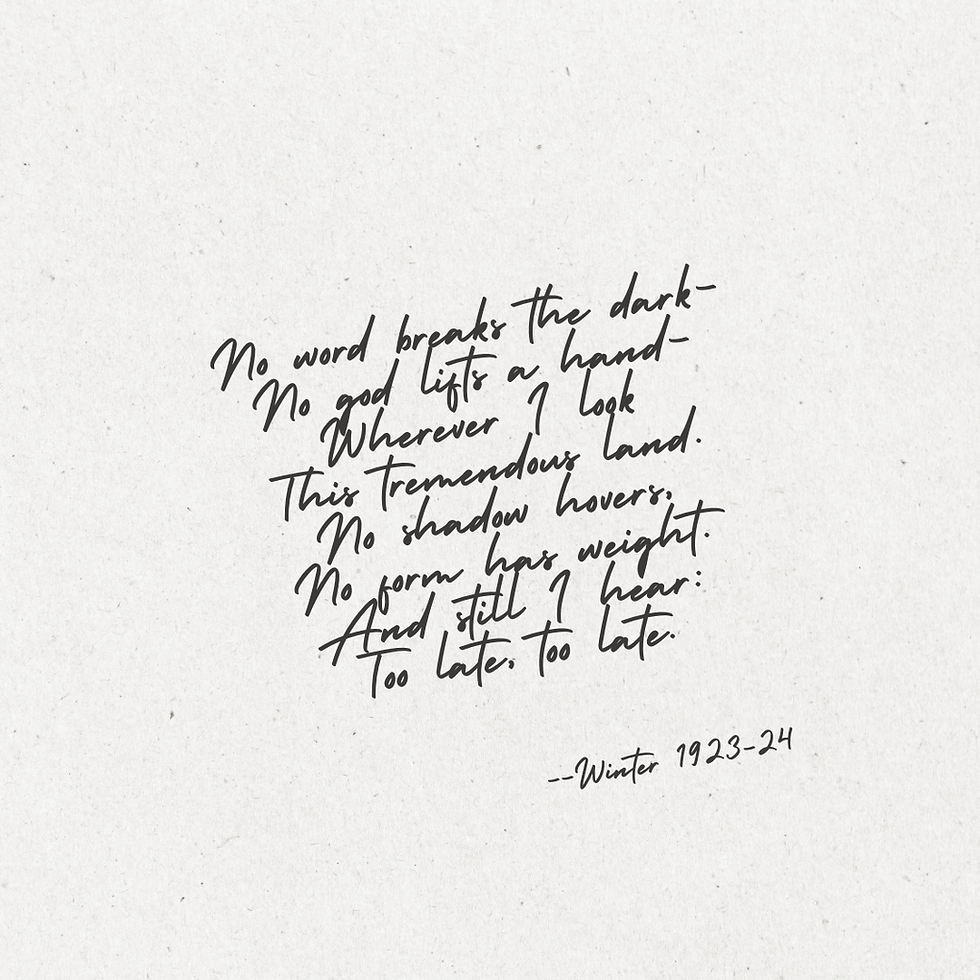 No word breaks the dark-
No god lifts a hand-
Wherever I look
This tremendous land.
No shadow hovers,
No form has weight.
And still I hear:
Too late, too late.
--Winter 1923-24